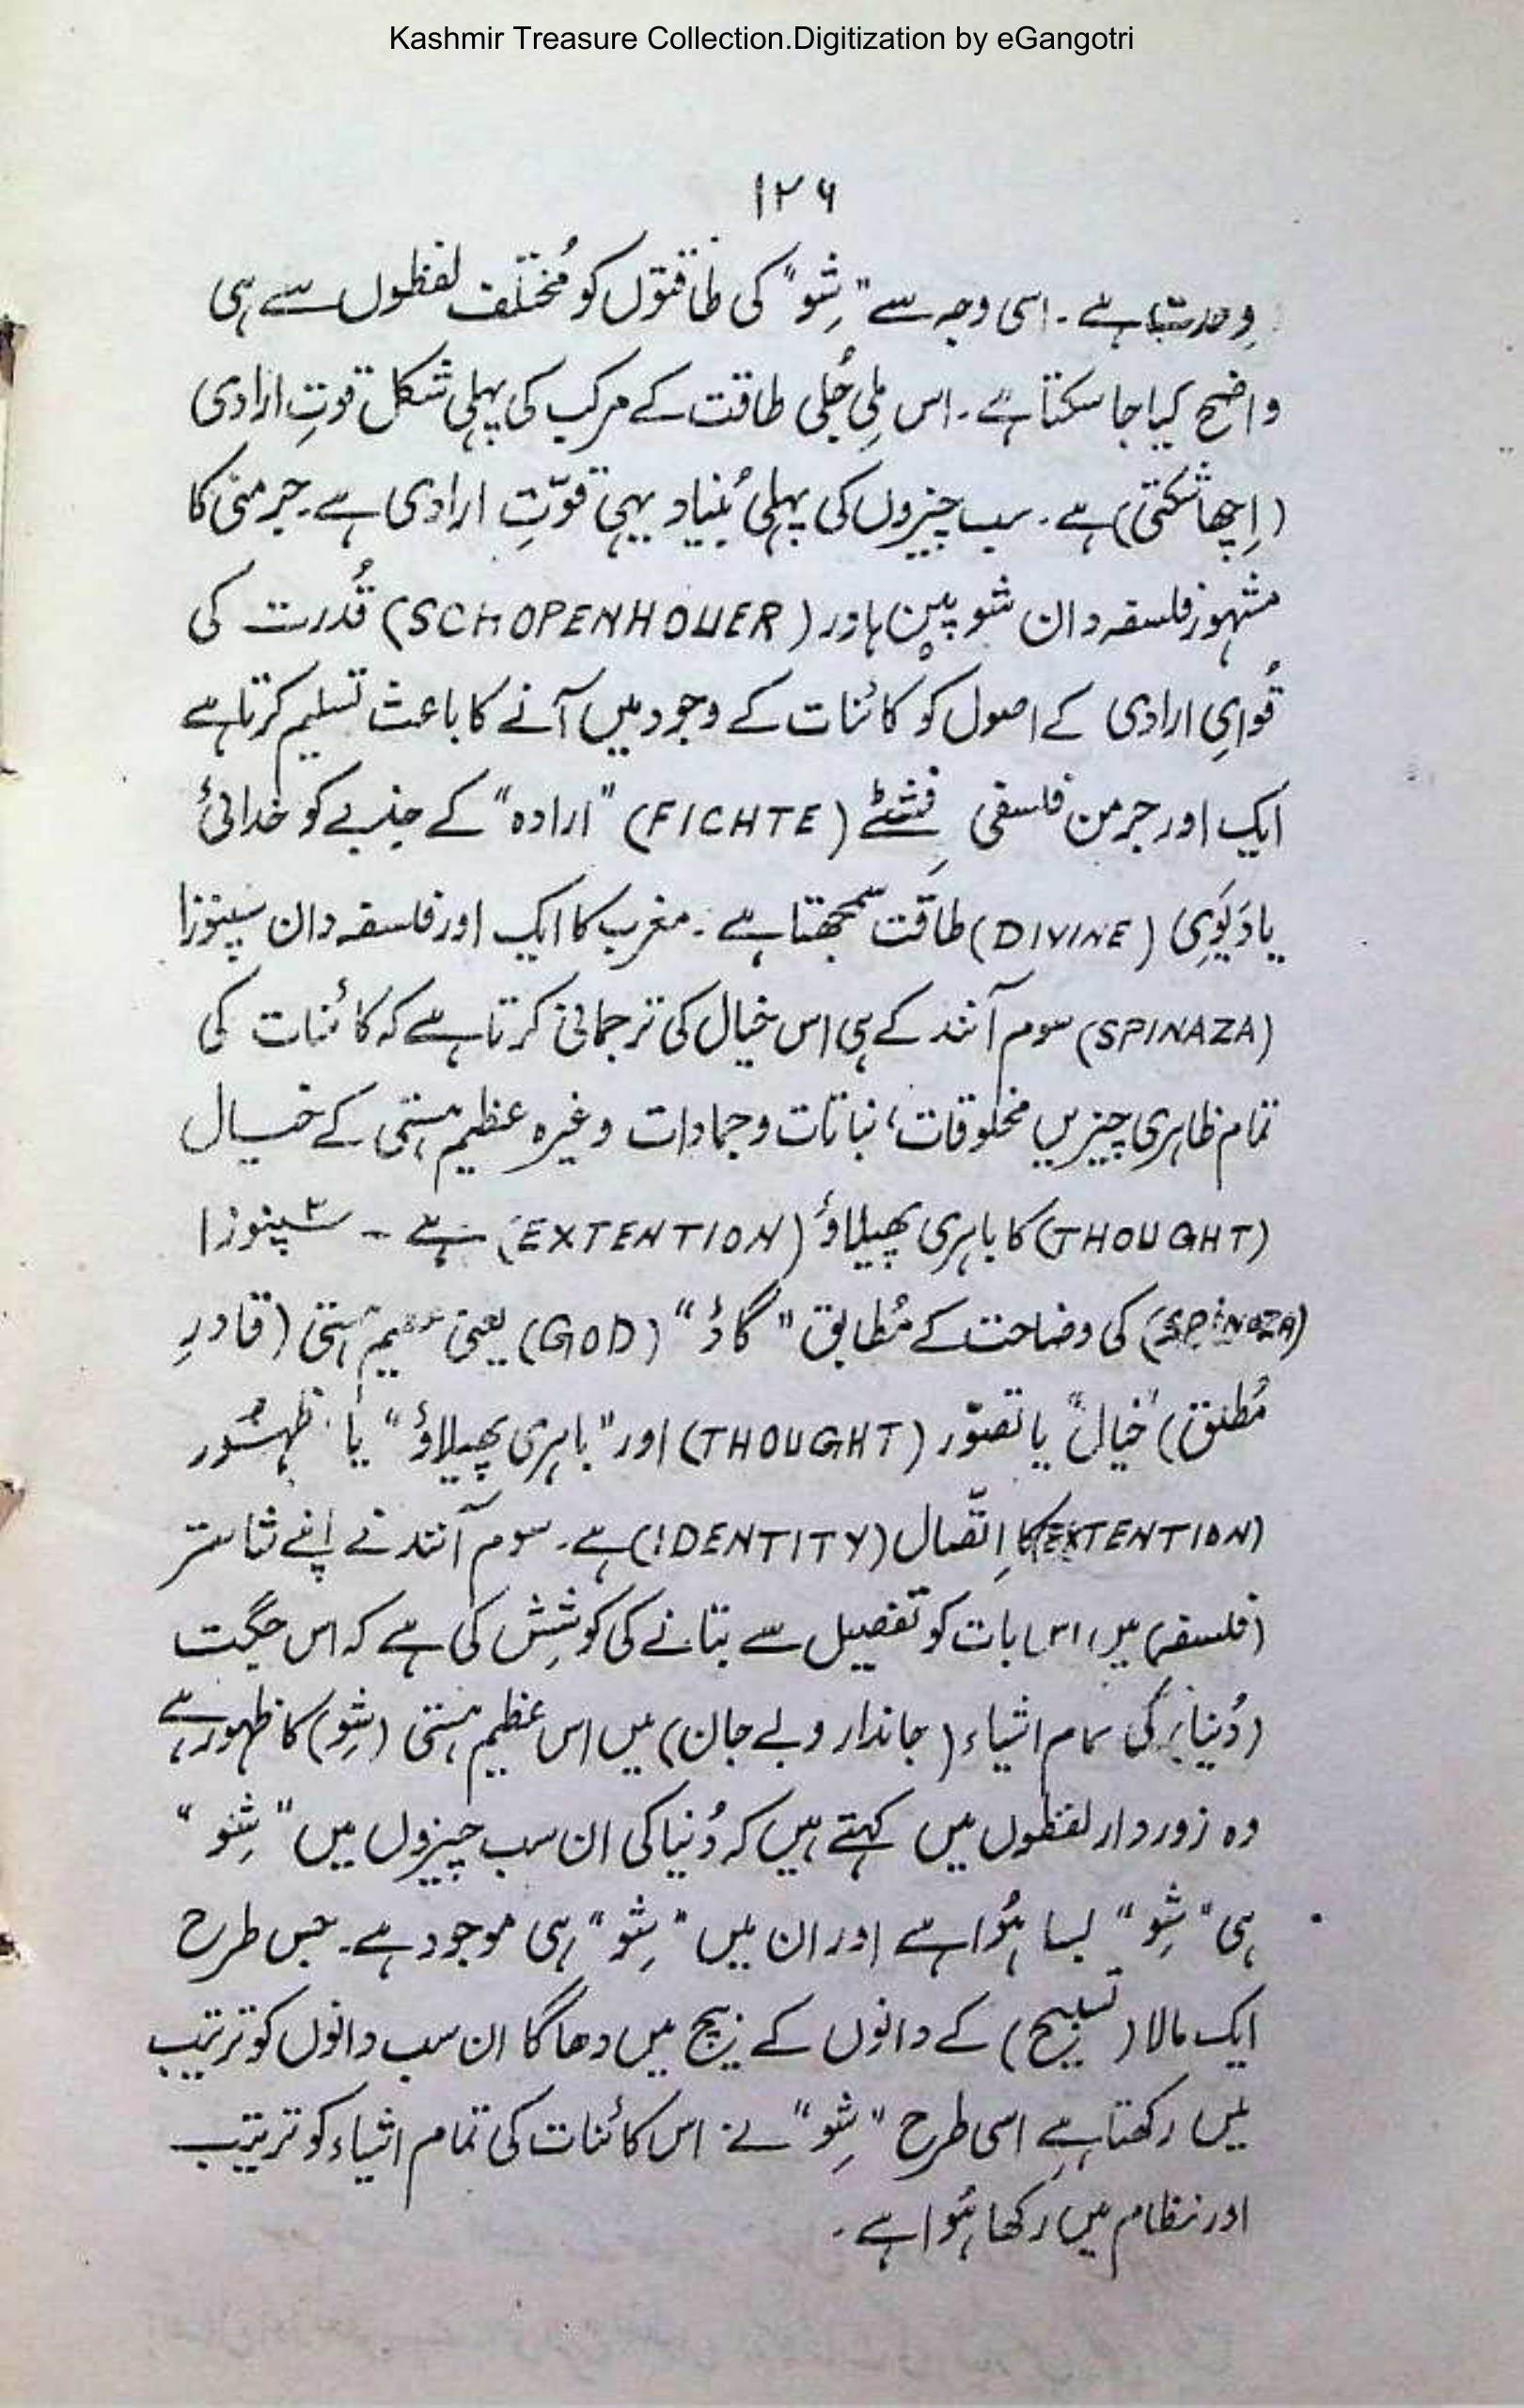 Kashmir Treasure Collection.Digitization by eGangotri
۱۲۶
وحدت ہے۔ اسی وجہ سے "شِو" کی طاقتوں کو مُختلف لفظوں سے ہی
واضح کیا جا سکتا ہے۔ اس مِلی جُلی طاقت کے مرکب کی پہلی شکل قوتِ ارادی
(اِچھا شکتی) ہے۔ سب چیزوں کی پہلی بُنیاد یہی قوّتِ ارادی ہے۔ جرمنی کا
مشہور فلسفہ دان شوپین ہاور (SCHOPENHOUER) قُدرت کی
قُوایِ ارادی کے اصول کو کائنات کے وجود میں آنے کا باعث تسلیم کرتا ہے
ایک اور جرمن فلسفی فِشٹے (FICHTE) "ارادہ" کے جذبے کو خدائی
یا دَیَوِی (DIVINE) طاقت سمجھتا ہے۔ مغرب کا ایک اور فلسفہ دان سپنوزا
(SPINAZA) سوم آنند کے ہی اس خیال کی ترجمانی کرتا ہے کہ کائنات کی
تمام ظاہری چیزیں مخلوقات، نباتات و جمادات وغیرہ عظیم ہستی کے خیال
(THOUGHT) کا باہری پھیلاؤ (EXTENTION) ہے ۔ سپنوزا
(SPINOZA) کی وضاحت کے مُطابق "گاڈ" (GOD) یعنی عظیم ہستی (قادرِ
مُطلق) "خیال" یا تصوّر (THOUGHT) اور "باہری پھیلاؤ" یا ظہُور
(EXTENTION) کا اِتّصال (IDENTITY) ہے۔ سوم آنند نے اپنے شاستر
(فلسفہ) میں اس بات کو تفصیل سے بتانے کی کوشِش کی ہے کہ اس جگت
(دُنیا) کی تمام اشیاء (جاندار و بے جان) میں اس عظیم ہستی (شِو) کا ظہور ہے
وہ زوردار لفظوں میں کہتے ہیں کہ دُنیا کی ان سب چیزوں میں "شِو"
ہی "شِو" بسا ہُوا ہے اور ان میں "شِو" ہی موجود ہے۔ جس طرح
ایک مالا (تسبیح) کے دانوں کے بیچ میں دھاگا ان سب دانوں کو ترتیب
میں رکھتا ہے اسی طرح "شِو" نے اس کائنات کی تمام اشیاء کو ترتیب
اور نظام میں رکھا ہُوا ہے۔